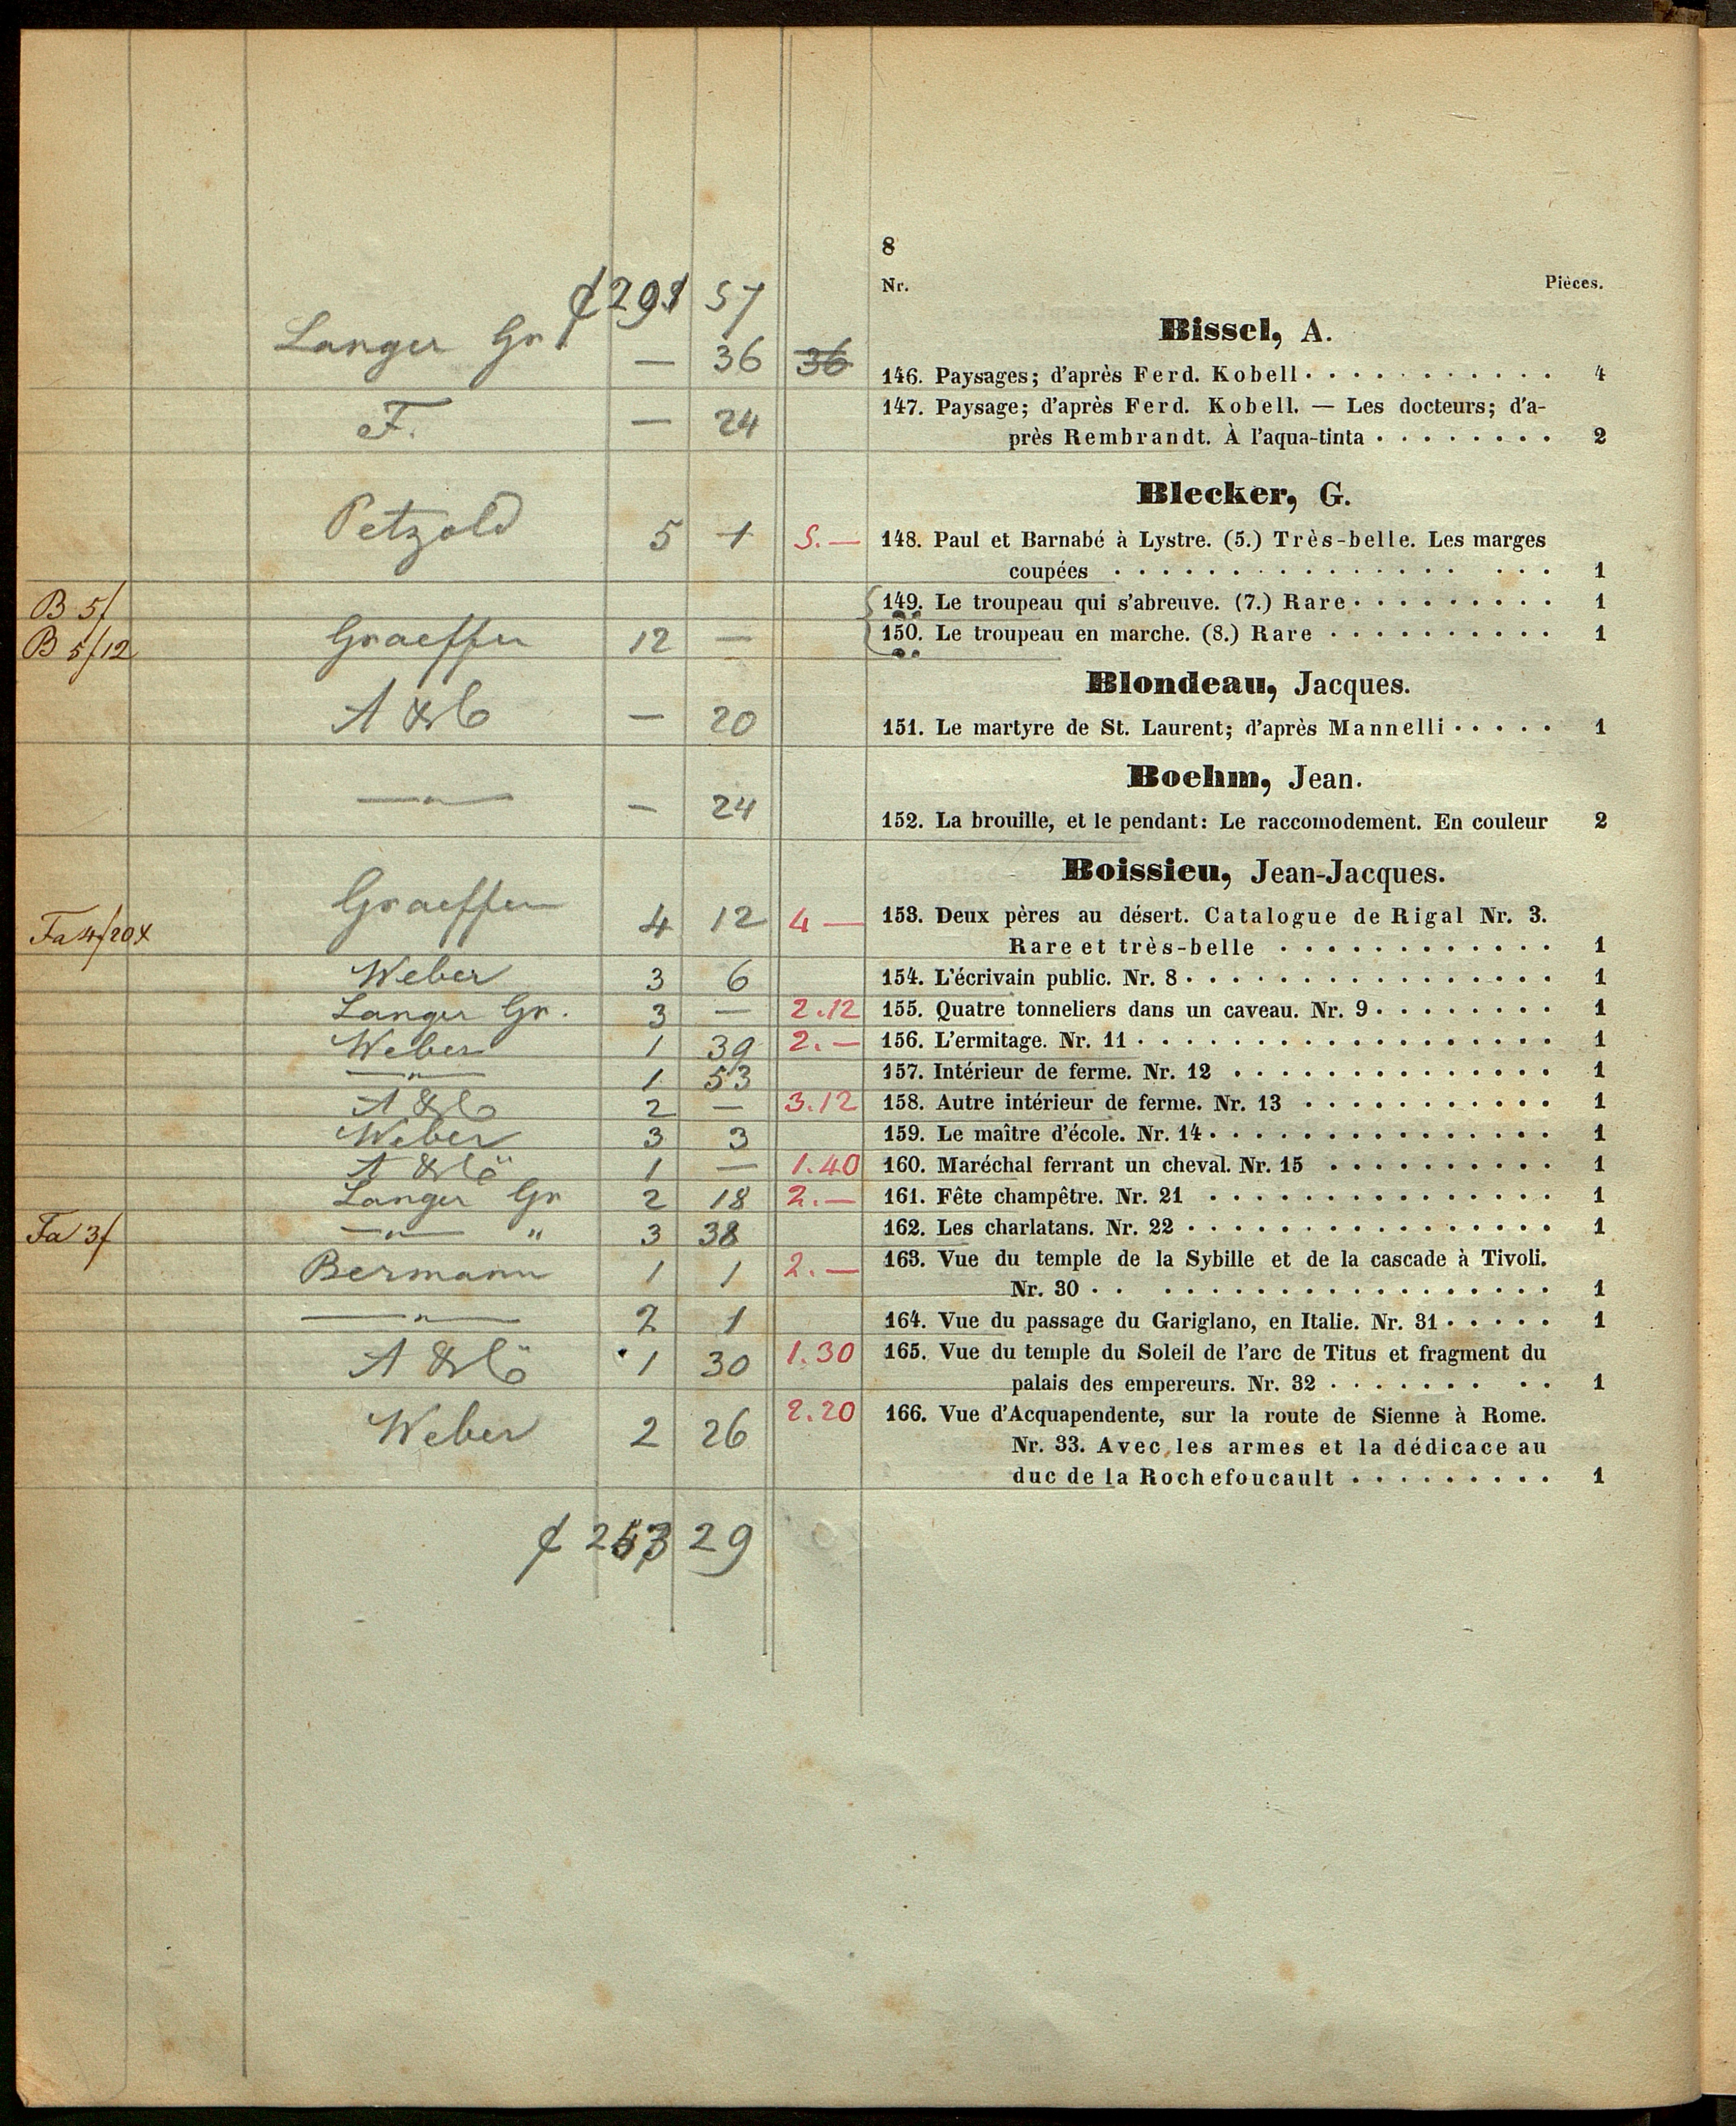 8
Nr. Pièces.
291 57
Bissel, A.
Langer Gr. — 36 36 146. Paysages; d'après Ferd. Kobell 4
F. — 24 147. Paysage; d'après Ferd. Kobell. — Les docteurs; d'a-
près Rembrandt. À l'aqua-tinta 2
Blecker, G.
Petzold 5 1 5.— 148. Paul et Barnabé à Lystre. (5.) Très-belle. Les marges
coupées 1
B 5/ 149. Le troupeau qui s'abreuve. (7.) Rare 1
B 5/12 Graeffer 12 — 150. Le troupeau en marche. (8.) Rare 1
Blondeau, Jacques.
— 20 151. Le martyre de St. Laurent; d'après Mannelli 1
Boehm, Jean.
—"— — 24 152. La brouille, et le pendant: Le raccomodement. En couleur 2
Boissieu, Jean-Jacques.
Fa 4/20x Graeffer 4 12 4 — 153. Deux pères au désert. Catalogue de Rigal Nr. 3.
Rare et très-belle 1
Weber 3 6 154. L'écrivain public. Nr. 8 1
Langer Gr. 3 — 2.12 155. Quatre tonneliers dans un caveau. Nr. 9 1
Weber 1 39 2.— 156. L'ermitage. Nr. 11 1
—"— 1 53 157. Intérieur de ferme. Nr. 12 1
2 — 3.12 158. Autre intérieur de ferme. Nr. 13 1
Weber 3 3 159. Le maître d'école. Nr. 14 1
1 — 1.40 160. Maréchal ferrant un cheval. Nr. 15 1
Langer Gr 2 18 2.— 161. Fête champêtre. Nr. 21 1
Fa 3/ —"— " 3 38 162. Les charlatans. Nr. 22 1
Bermann 1 1 2.— 163. Vue du temple de la Sybille et de la cascade à Tivoli.
Nr. 30 1
—"— 2 1 164. Vue du passage du Gariglano, en Italie. Nr. 31 1
1 30 1.30 165. Vue du temple du Soleil de l'arc de Titus et fragment du
palais des empereurs. Nr. 32 1
Weber 2 26 2.20 166. Vue d'Acquapendente, sur la route de Sienne à Rome.
Nr. 33. Avec les armes et la dédicace au
duc de la Rochefoucault 1
29